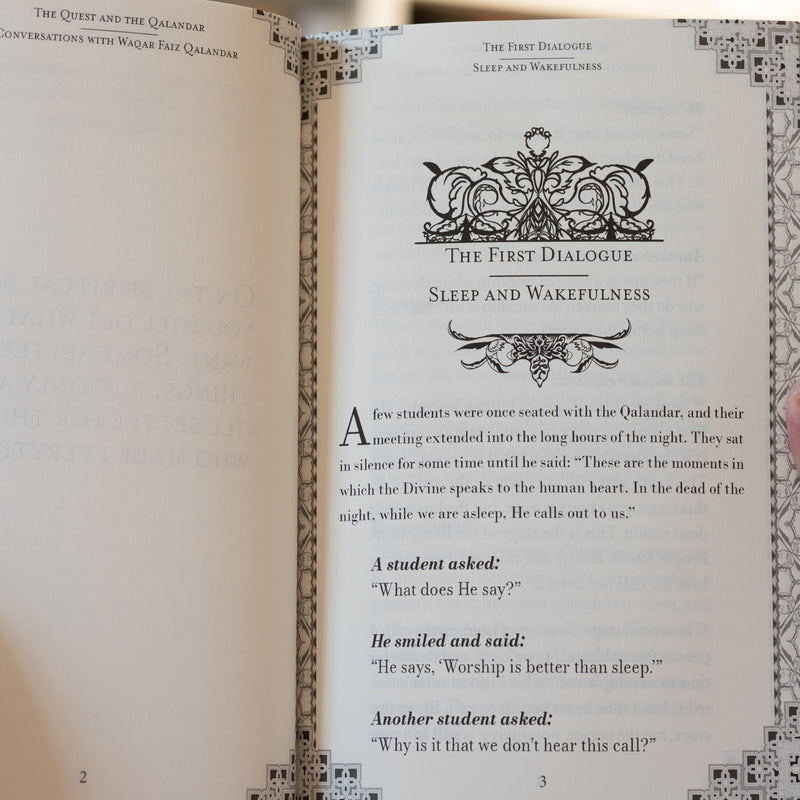 The Quest and the Qalandar
Conversations with Waqar Faiz Qalandar
2
The First Dialogue
Sleep and Wakefulness
The First Dialogue
Sleep and Wakefulness
A few students were once seated with the Qalandar, and their
meeting extended into the long hours of the night. They sat
in silence for some time until he said: “These are the moments in
which the Divine speaks to the human heart. In the dead of the
night, while we are asleep, He calls out to us.”
A student asked:
“What does He say?”
He smiled and said:
“He says, ‘Worship is better than sleep.’”
Another student asked:
“Why is it that we don’t hear this call?”
3